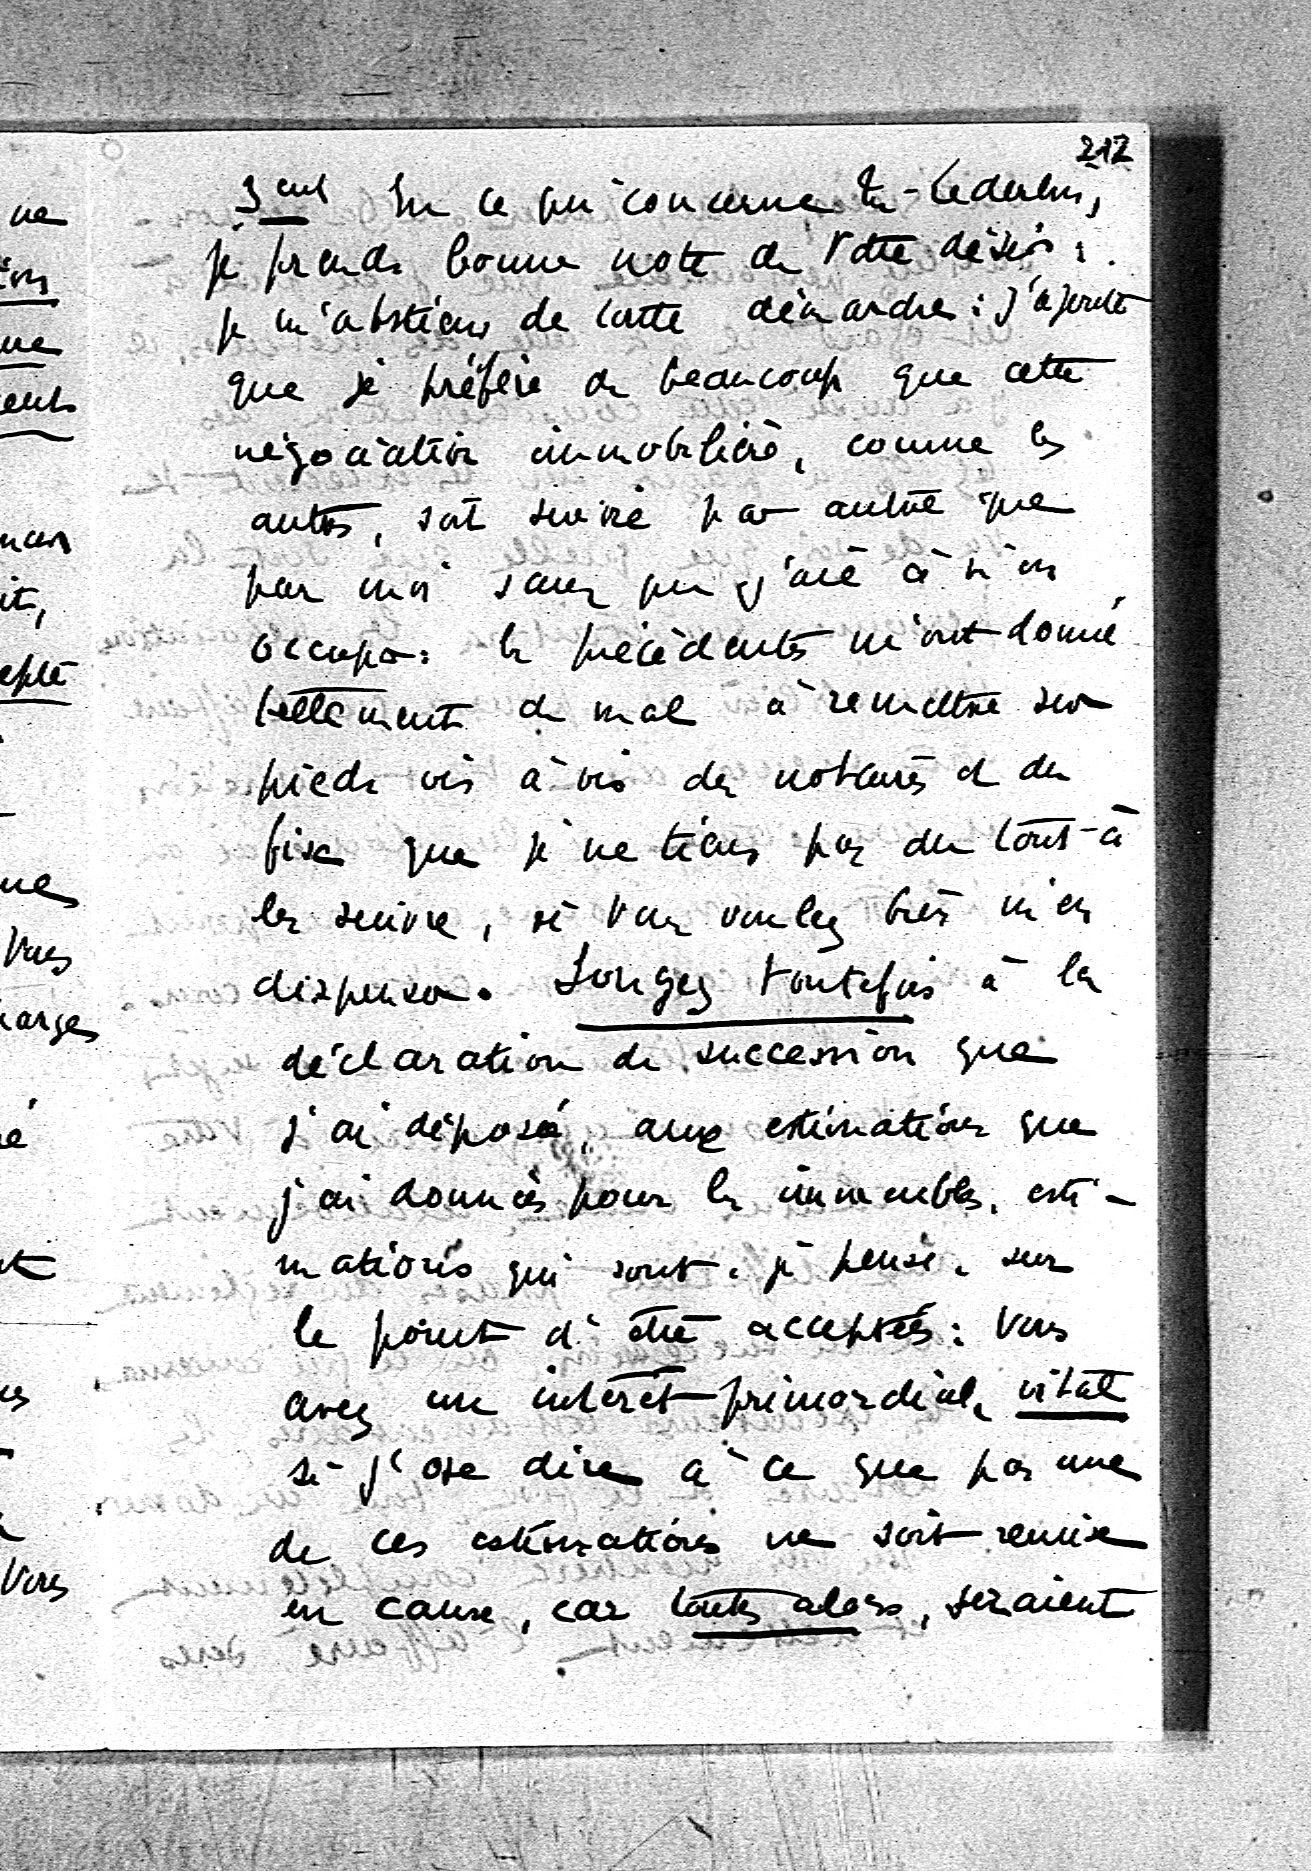 212
3ent En ce qui concerne
je prends bonne note de Votre désir :
je m'abstiens de toute démarche : j'ajoute
que je préfère de beaucoup que cette
négociation immobilière, comme les
autres, soit suivie par autre que
par moi sans que j'aie à m'en
occuper : les précédentes m'ont donné
tellement de mal à remettre sur
pieds vis à vis des notaires et du
fisc que je ne tiens pas du tout à
les suivre, si Vous voulez bien m'en
dispenser. Songez toutefois à la
déclaration de succession que
j'ai déposée, aux estimations que
j'ai données pour les immeubles, esti-
mations qui sont, je pense, sur
le point d'être acceptées : Vous
avez un intérêt primordial, vital
si j'ose dire à ce que pas une
de ces estimations ne soit remise
en cause, car toutes alors, seraient
ne
ions
ne
ents
it,
epté
Vous
harges
Vous